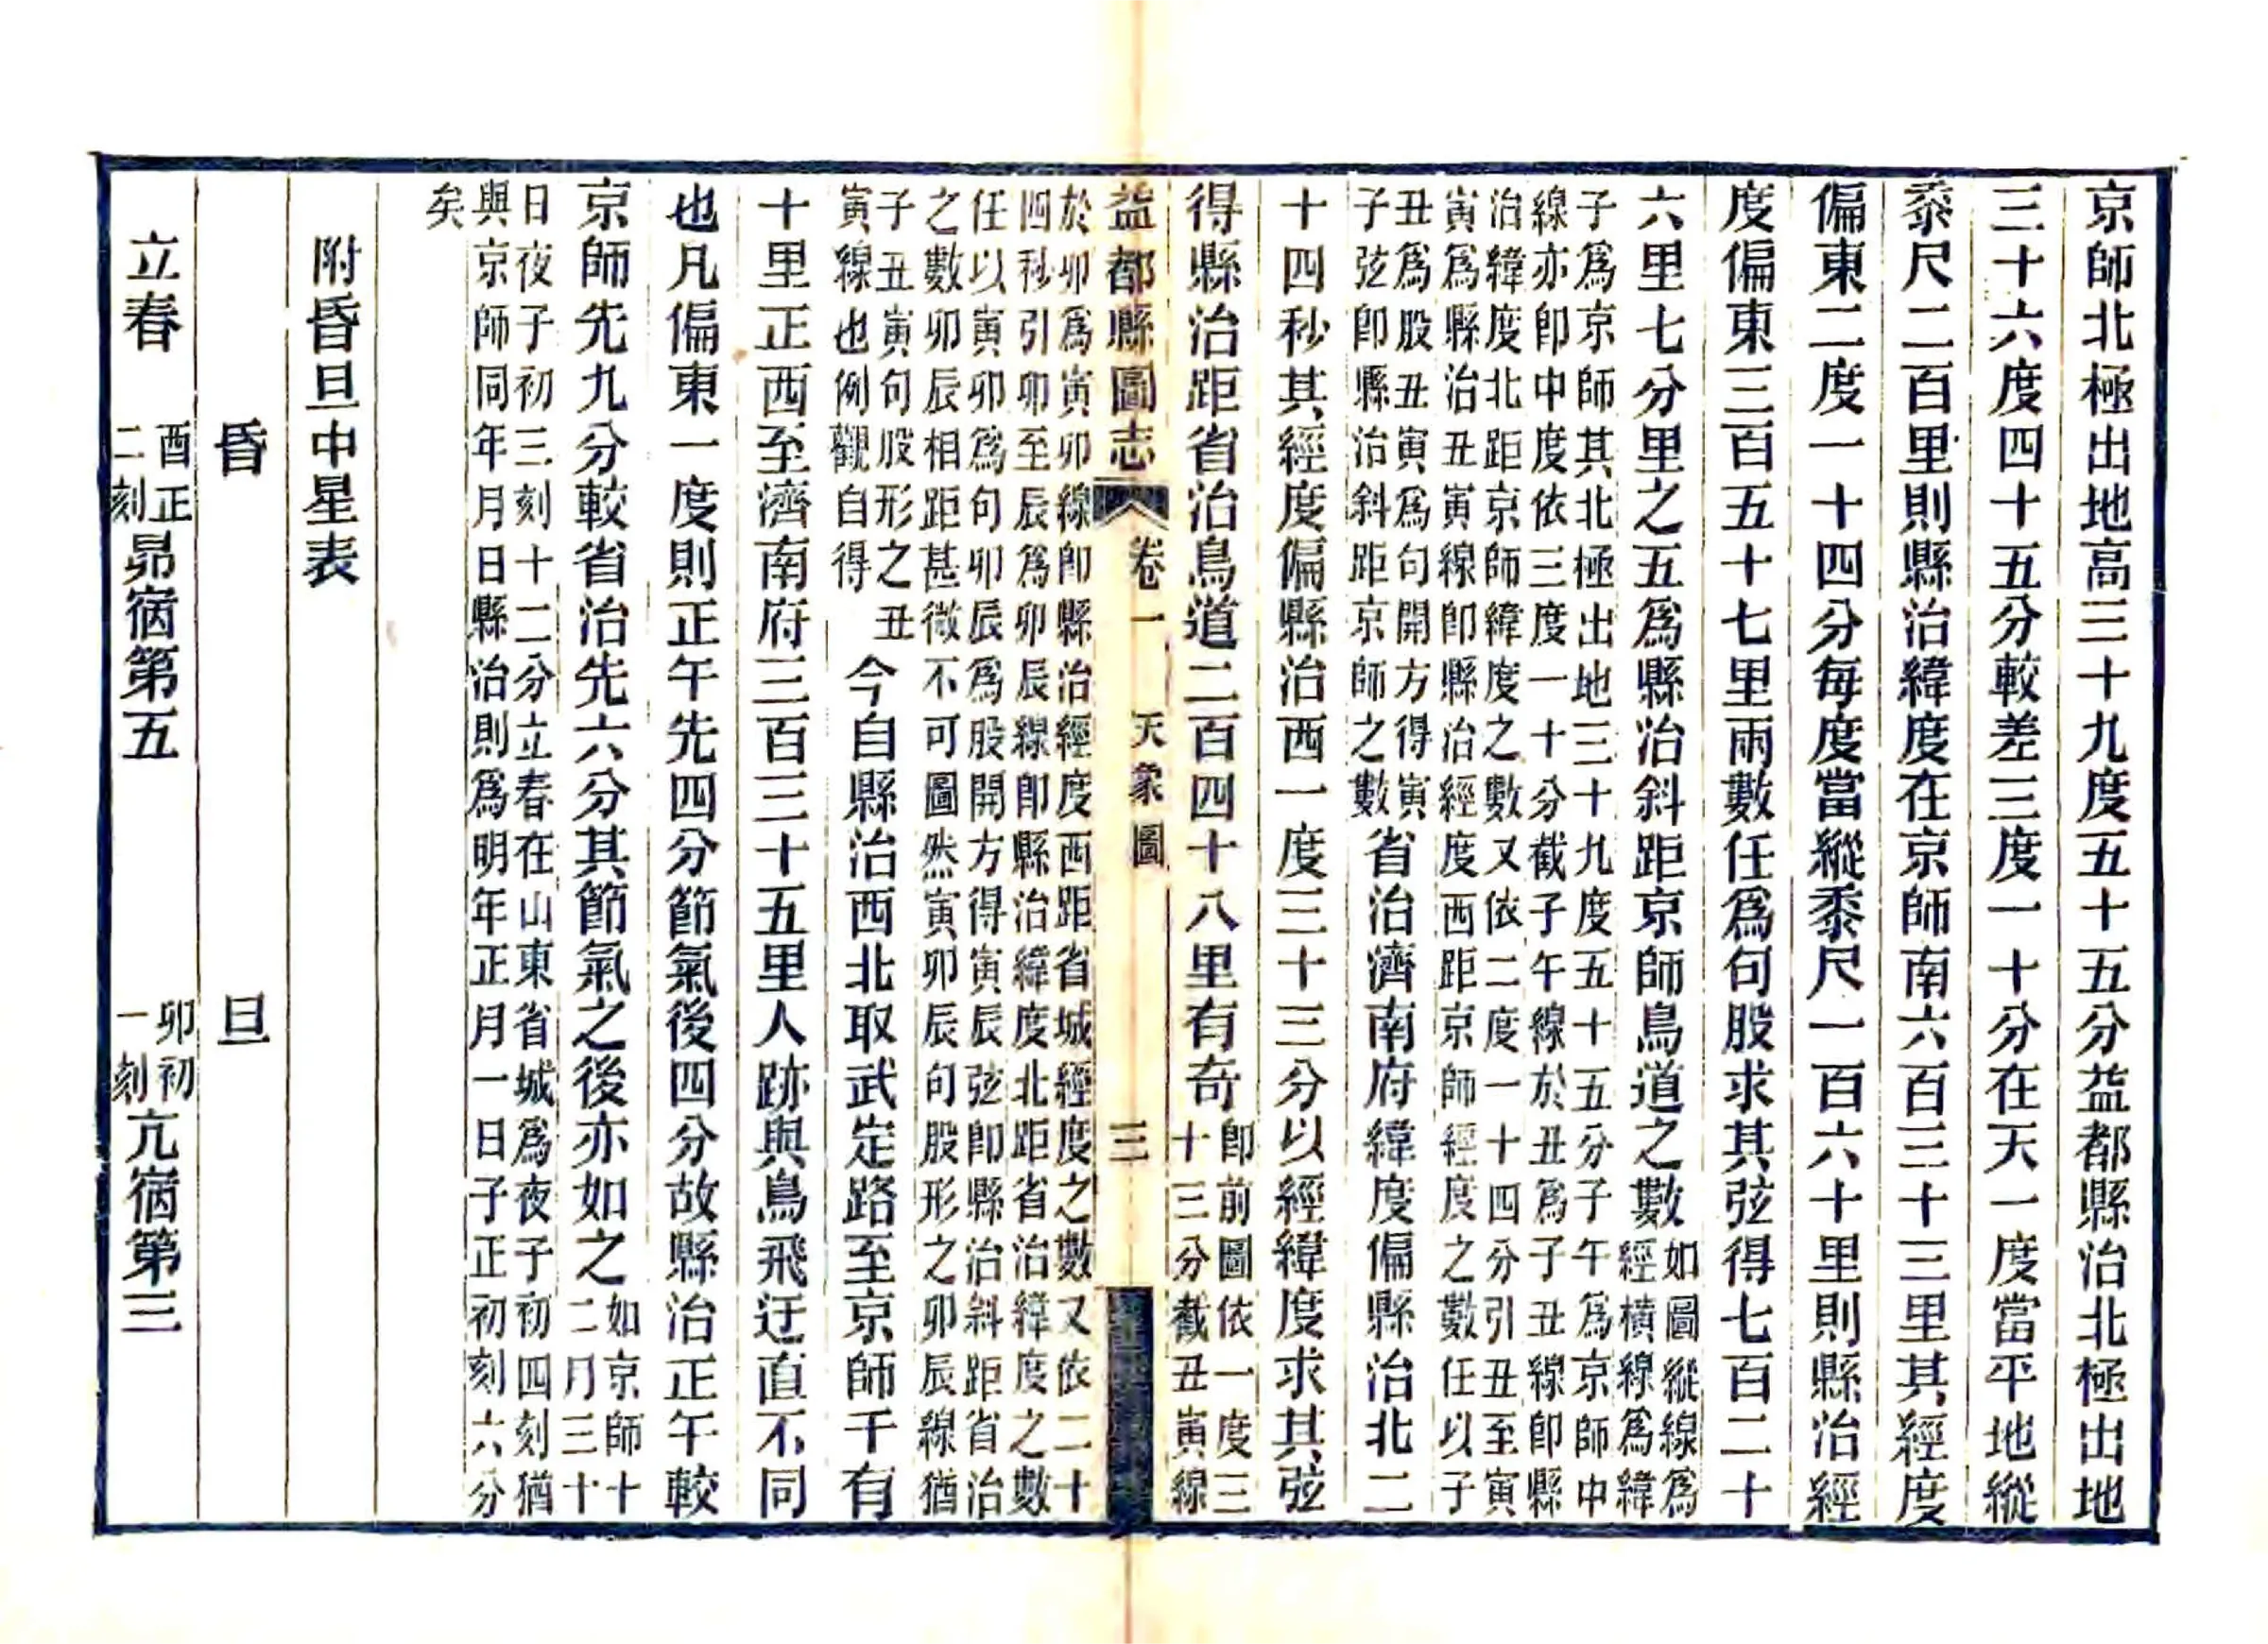 京師北極出地高三十九度五十五分益都縣治北極出地
三十六度四十五分較差三度一十分在天一度當平地縱
黍尺二百里則縣治緯度在京師南六百三十三里其經度
偏東二度一十四分每度當縱黍尺一百六十里則縣治經
度偏東三百五十七里兩數任爲句股求其弦得七百二十
六里七分里之五爲縣治斜距京師鳥道之數如圖縱線爲
經橫線爲緯
子爲京師其北極出地三十九度五十五分子午爲京師中
線亦卽中度依三度一十分截子午線於丑爲子丑線卽縣
治緯度北距京師緯度之數又依二度一十四分引丑至寅
寅爲縣治丑寅線卽縣治經度西距京師經度之數任以子
丑爲股丑寅爲句開方得寅
子弦卽縣治斜距京師之數省治濟南府緯度偏縣治北二
十四秒其經度偏縣治西一度三十三分以經緯度求其弦
得縣治距省治鳥道二百四十八里有奇卽前圖依一度三
十三分截丑寅線
益都縣圖志 卷一 天象圖 三
於卯爲寅卯線卽縣治經度西距省城經度之數又依二十
四秒引卯至辰爲卯辰線卽縣治緯度北距省治緯度之數
任以寅卯爲句卯辰爲股開方得寅辰弦卽縣治斜距省治
之數卯辰相距甚微不可圖然寅卯辰句股形之卯辰線猶
子丑寅句股形之丑
寅線也例觀自得今自縣治西北取武定路至京師千有
十里正西至濟南府三百三十五里人跡與鳥飛迂直不同
也凡偏東一度則正午先四分節氣後四分故縣治正午較
京師先九分較省治先六分其節氣之後亦如之如京師十
二月三十
日夜子初三刻十二分立春在山東省城爲夜子初四刻猶
與京師同年月日縣治則爲明年正月一日子正初刻六分
矣
附昏旦中星表
昏 旦
立春 酉正二刻昴宿第五 卯初一刻亢宿第三